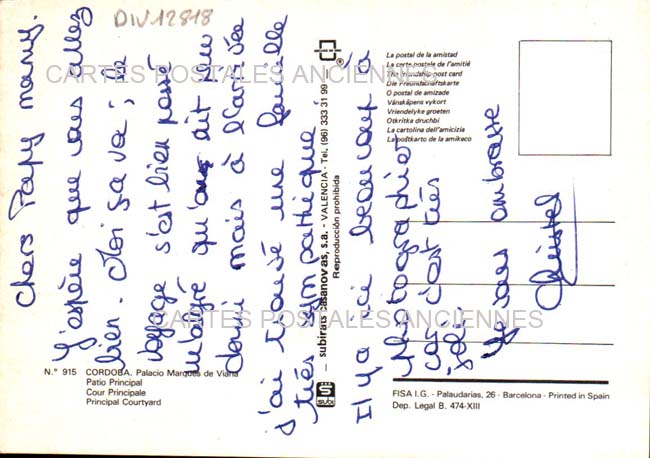 DIV12818
Chers Papy mamy.
J'espère que vous allez
bien. Moi sa va; le
voyage s'est bien passé
malgré qu'on ait eu
dormi mais à l'arrivée
j'ai trouvé une famille
très sympathique.
Il y a ici beaucoup à
photographier
car c'est très
joli.
Je vous embrasse
CARTES POSTALES ANCIENNES
CARTES POSTALES ANCIENNES
La postal de la amistad
La carte postale de l'amitié
The friendship post card
Die Freundschaftskarte
O postal de amizade
Vänskåpens vykort
Vriendelyke groeten
Otkritka druchbi
La cartolina dell'amicizia
La poŝtkarto de la amikaco
subirats casanovas, s.a. - VALENCIA - Tel. (96) 333 31 99 -
Reproducción prohibida
®
subi
N.° 915 CORDOBA. Palacio Marqués de Viana
Patio Principal
Cour Principale
Principal Courtyard
FISA I.G. - Palaudarias, 26 - Barcelona - Printed in Spain
Dep. Legal B. 474-XIII